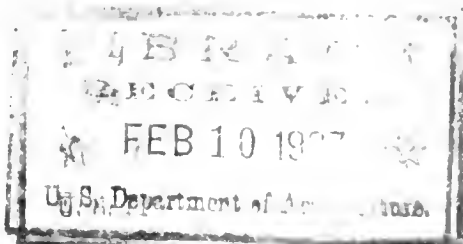 LIBRARY
RECEIVED
FEB 10
U. S. Department of Agriculture.